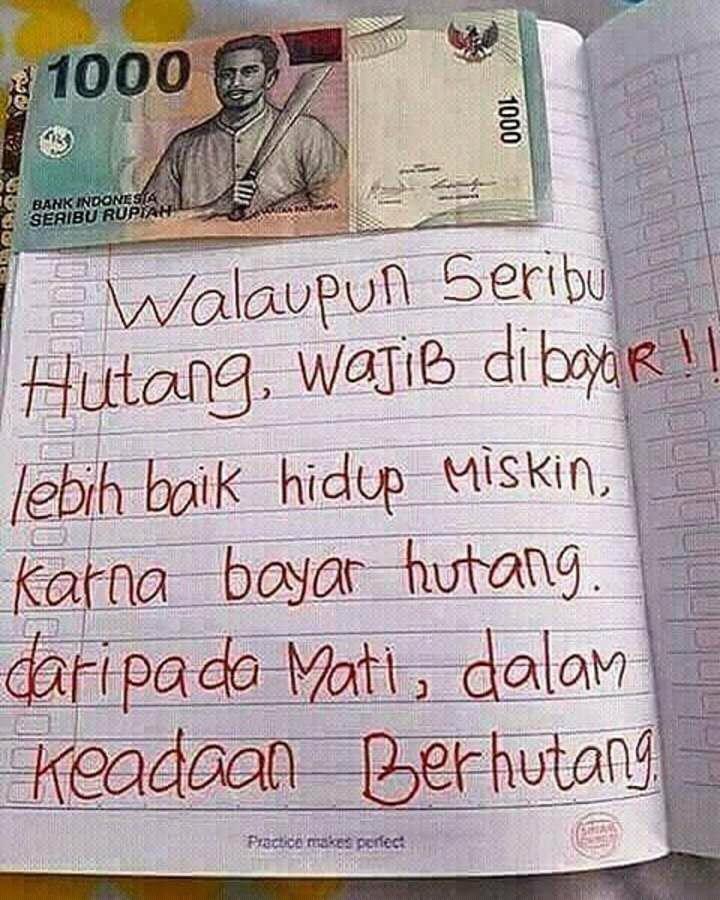 1000
1000
BANK INDONESIA
SERIBU RUPIAH
Walaupun Seribu
Hutang, WAJiB dibayaR!!
lebih baik hidup Miskin,
Karna bayar hutang.
daripada Mati, dalaM
Keadaan Berhutang.
Practice makes perfect